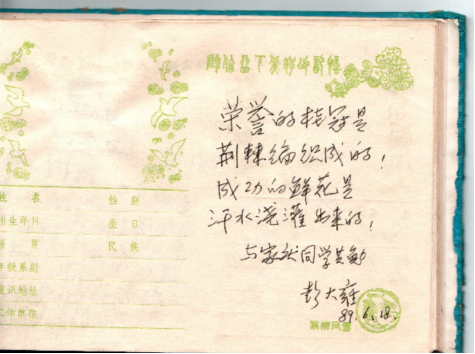 姓 名
性 别
出生年月
生 日
籍 贯
民 族
年级系别
通讯地址
工作单位
荣誉的桂冠是
荆棘编织成的，
成功的鲜花是
汗水浇灌出来的，
与家
同学共勉
彭大雍
89.6.18.